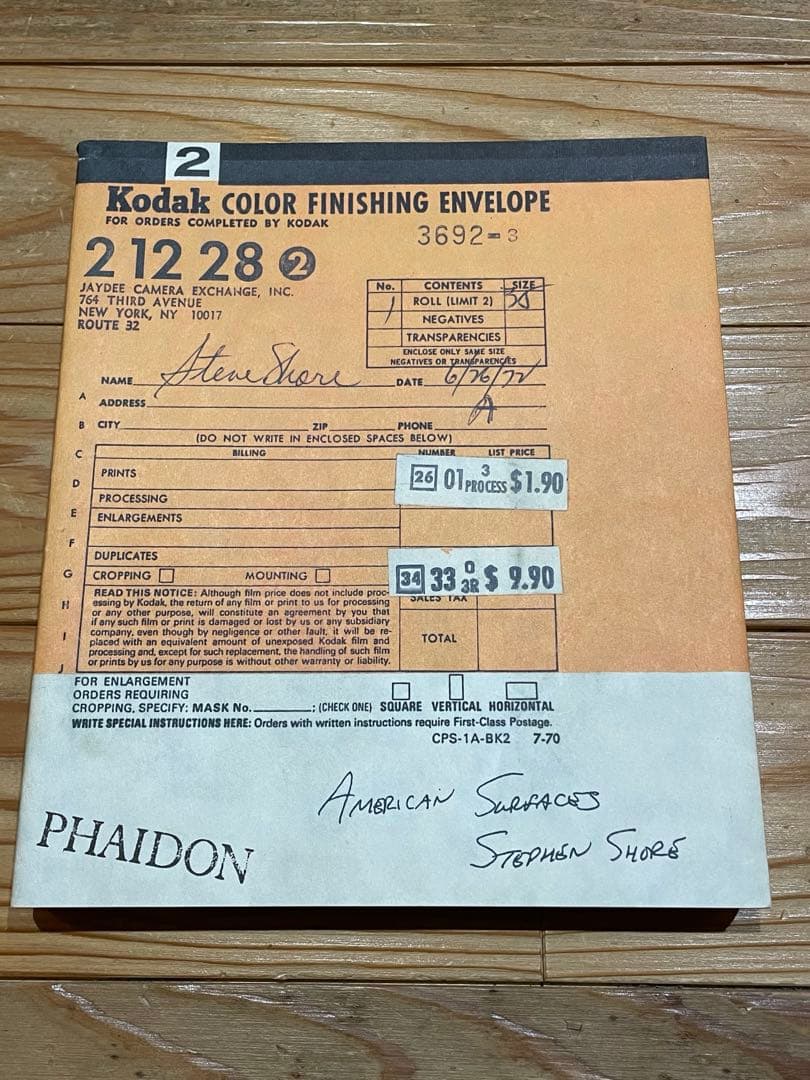 2
Kodak COLOR FINISHING ENVELOPE
FOR ORDERS COMPLETED BY KODAK
3692-3
2 12 28 2
JAYDEE CAMERA EXCHANGE, INC.
764 THIRD AVENUE
NEW YORK, NY 10017
ROUTE 32
No. CONTENTS SIZE
1 ROLL (LIMIT 2)
NEGATIVES
TRANSPARENCIES
ENCLOSE ONLY SAME SIZE
NEGATIVES OR TRANSPARENCIES
NAME Steve Shore DATE 6/26/72
A ADDRESS A
B CITY ZIP PHONE
(DO NOT WRITE IN ENCLOSED SPACES BELOW)
C BILLING NUMBER LIST PRICE
PRINTS
26 01 3 PROCESS $1.90
D
PROCESSING
E ENLARGEMENTS
F
DUPLICATES
G CROPPING MOUNTING
34 33 0 3R $ 9.90
SALES TAX
READ THIS NOTICE: Although film price does not include proc-
essing by Kodak, the return of any film or print to us for processing
H or any other purpose, will constitute an agreement by you that
if any such film or print is damaged or lost by us or any subsidiary
I company, even though by negligence or other fault, it will be re-
placed with an equivalent amount of unexposed Kodak film and
processing and, except for such replacement, the handling of such film
J or prints by us for any purpose is without other warranty or liability.
TOTAL
FOR ENLARGEMENT
ORDERS REQUIRING
CROPPING, SPECIFY: MASK No. ; (CHECK ONE) SQUARE VERTICAL HORIZONTAL
WRITE SPECIAL INSTRUCTIONS HERE: Orders with written instructions require First-Class Postage.
CPS-1A-BK2 7-70
AMERICAN SURFACES
STEPHEN SHORE
PHAIDON